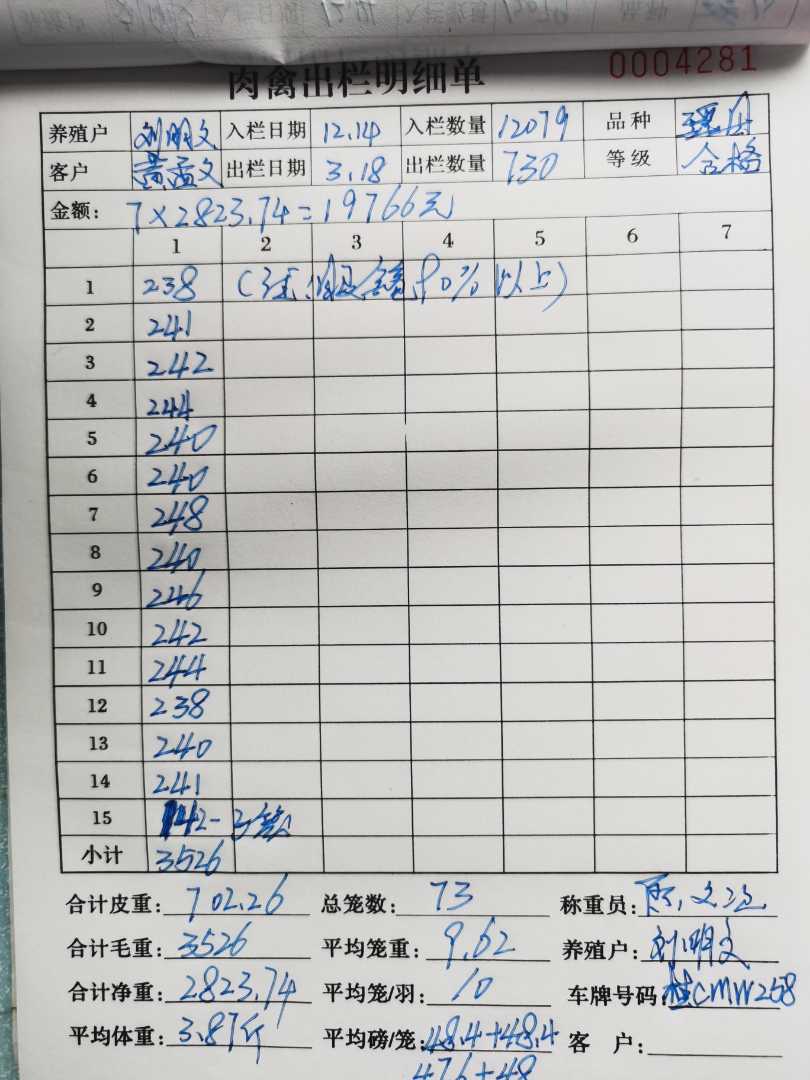 0004281
肉禽出栏明细单
养殖户 刘明文 入栏日期 12.14 入栏数量 12079 品种
客户 黄孟文 出栏日期 3.18 出栏数量 730 等级 合格
金额: 7×2823.74=19766元
1 2 3 4 5 6 7
1 238 90%以上)
2 241
3 242
4 244
5 240
6 240
7 248
8 240
9 246
10 242
11 244
12 238
13 240
14 241
15 142-3笼
小计 3526
合计皮重: 702.26 总笼数: 73 称重员:
合计毛重: 3526 平均笼重: 9.62 养殖户: 刘明文
合计净重: 2823.74 平均笼/羽: 10 车牌号码: 桂CMW258
平均体重: 3.87斤 平均磅/笼: 48.4+48.4 客户:
47.6+48